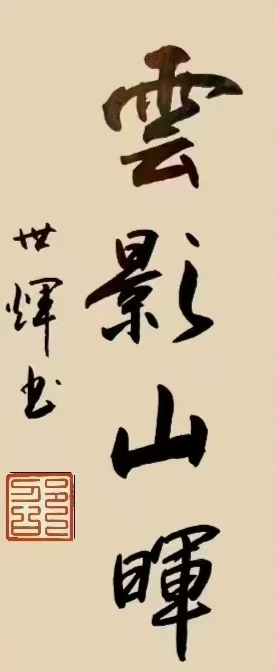 雲影山暉
世輝书